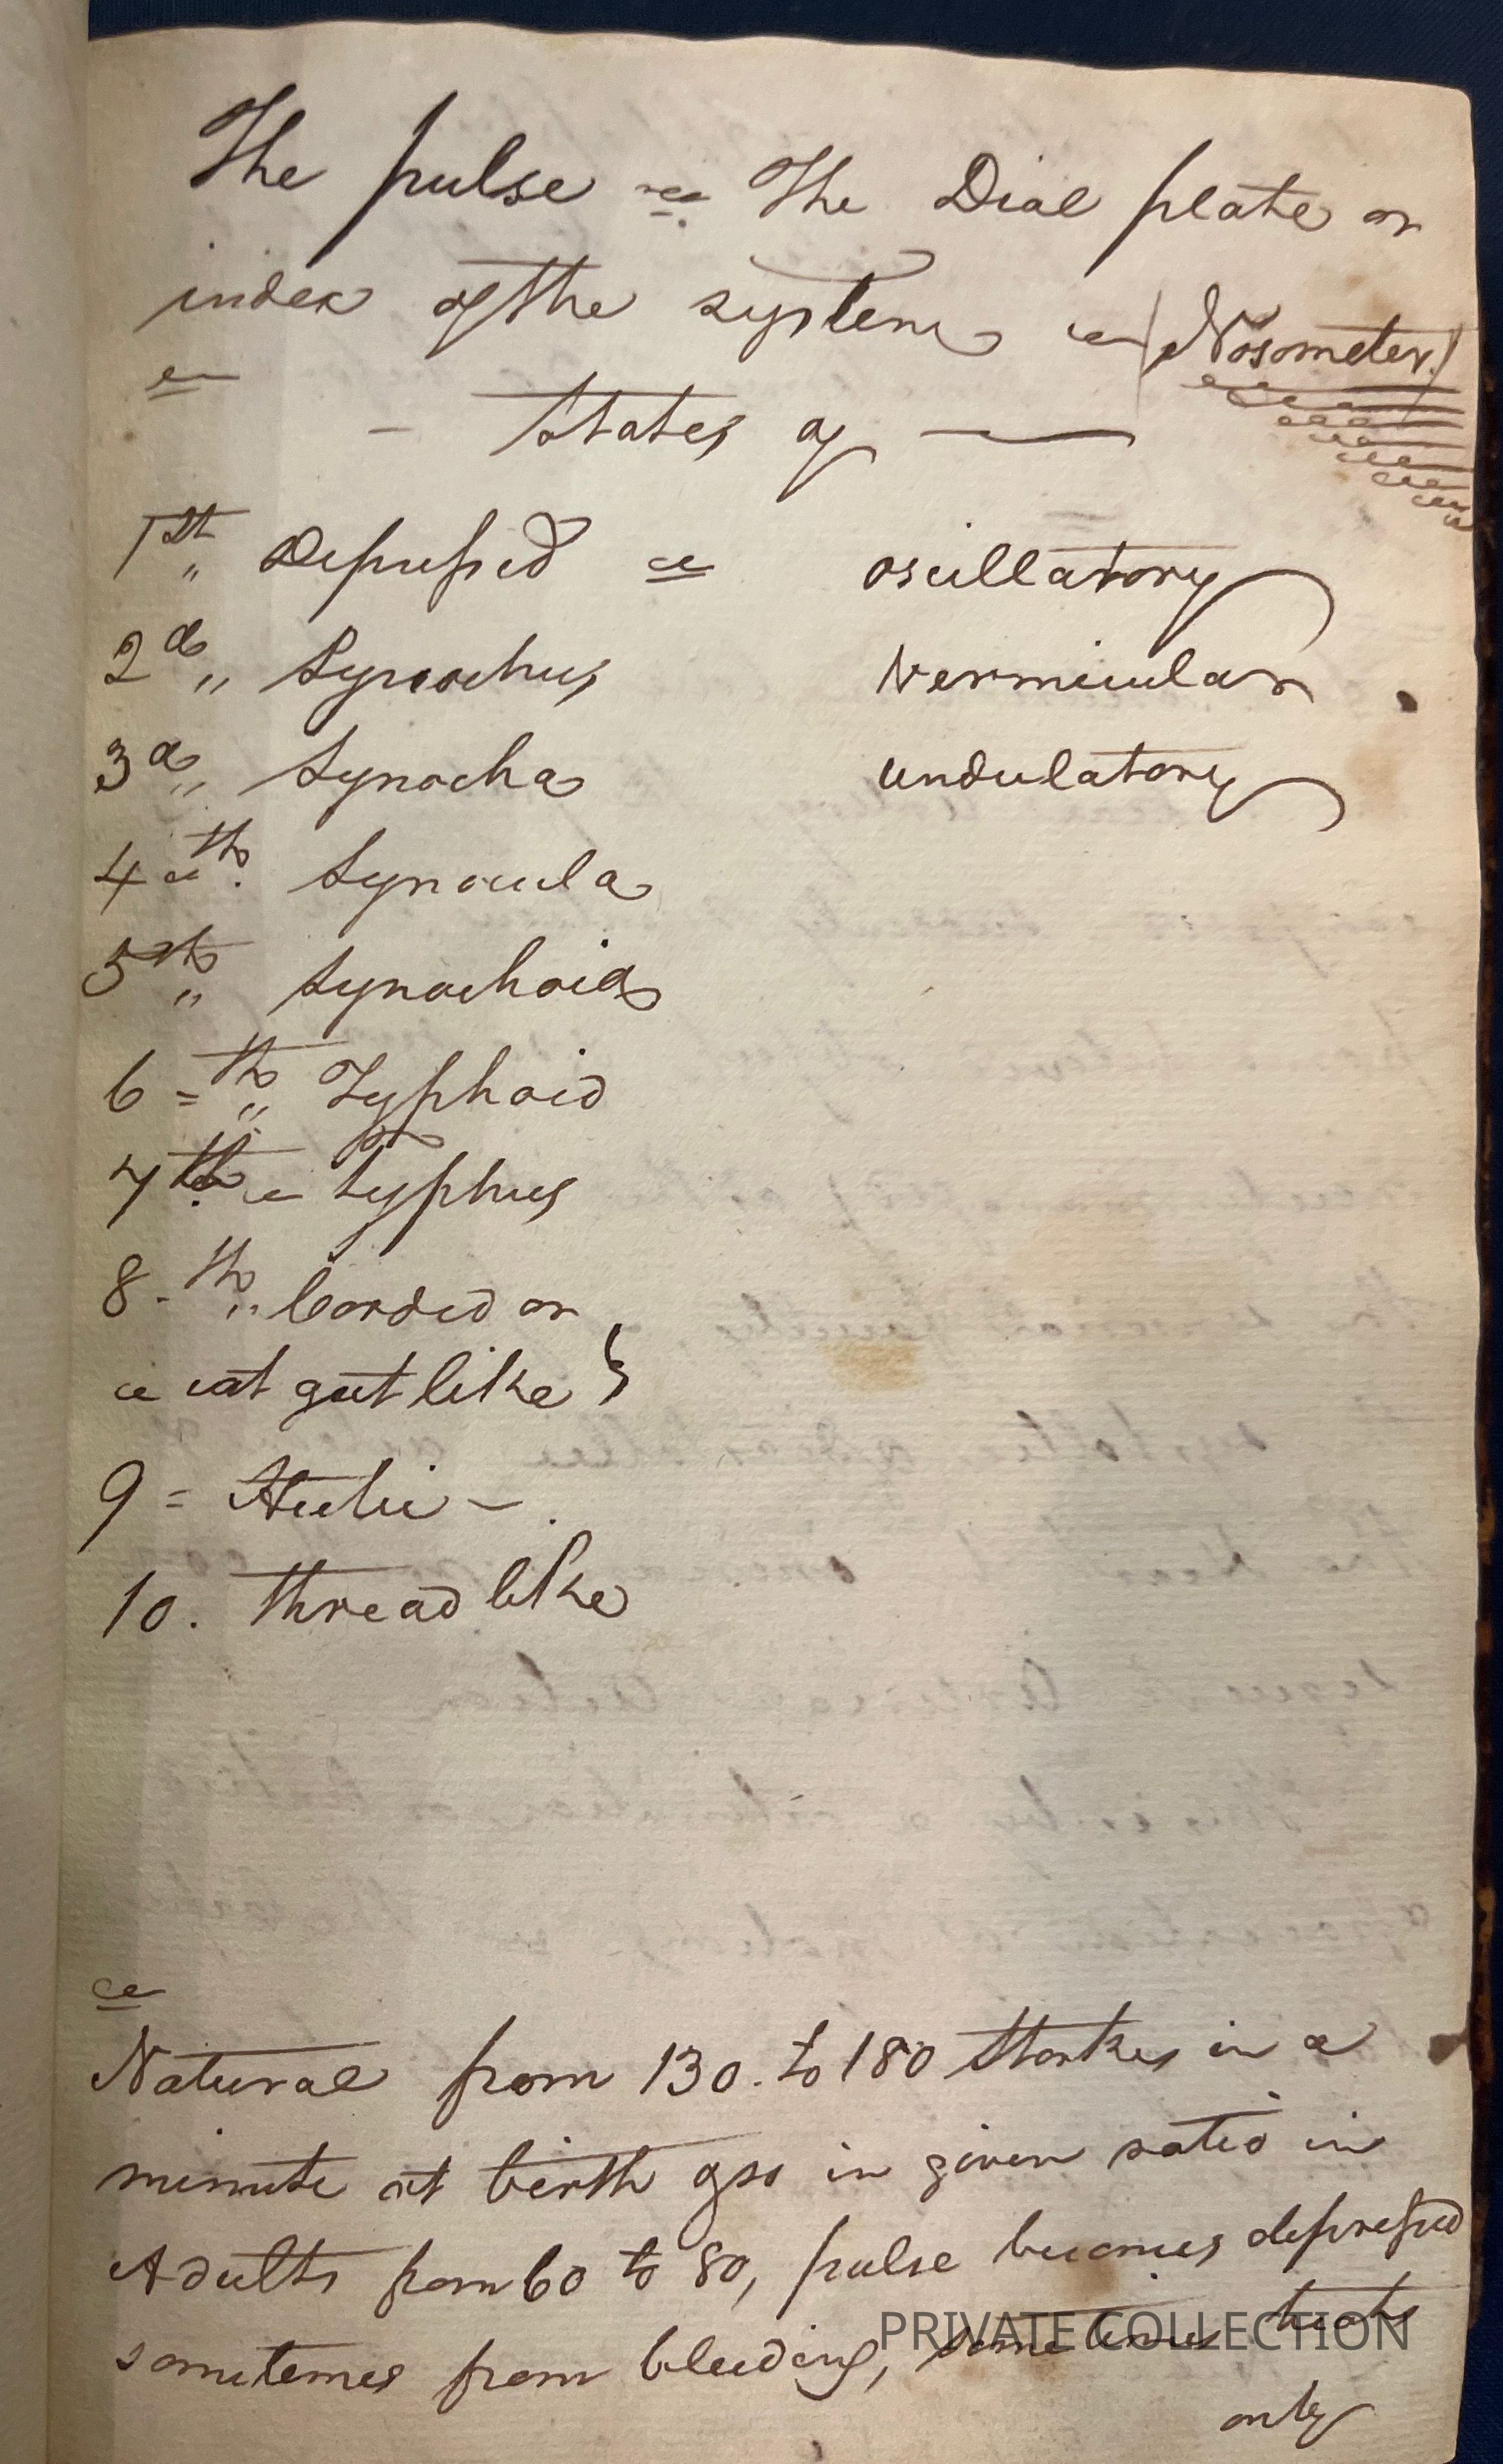 The pulse = The Dial plate or
index of the system = (Nosometer.)
– States of ——
1st „ Depressed = oscillatory
2d „ Synochus vermicular
3d „ Synocha undulatory
4 = th. Synocula
5th „ Synochoid
6 = th „ Typhoid
7th = typhus
8 - th „ Corded or
= cat gut like }
9 = Hectic –.
10. thread like
Natural from 130. to 180 Storkes in a
minute at birth goo in given ratio in
Adults from 60 to 80, pulse becomes depressed
sometemes from bleeding, sometimes beats
only
PRIVATE COLLECTION